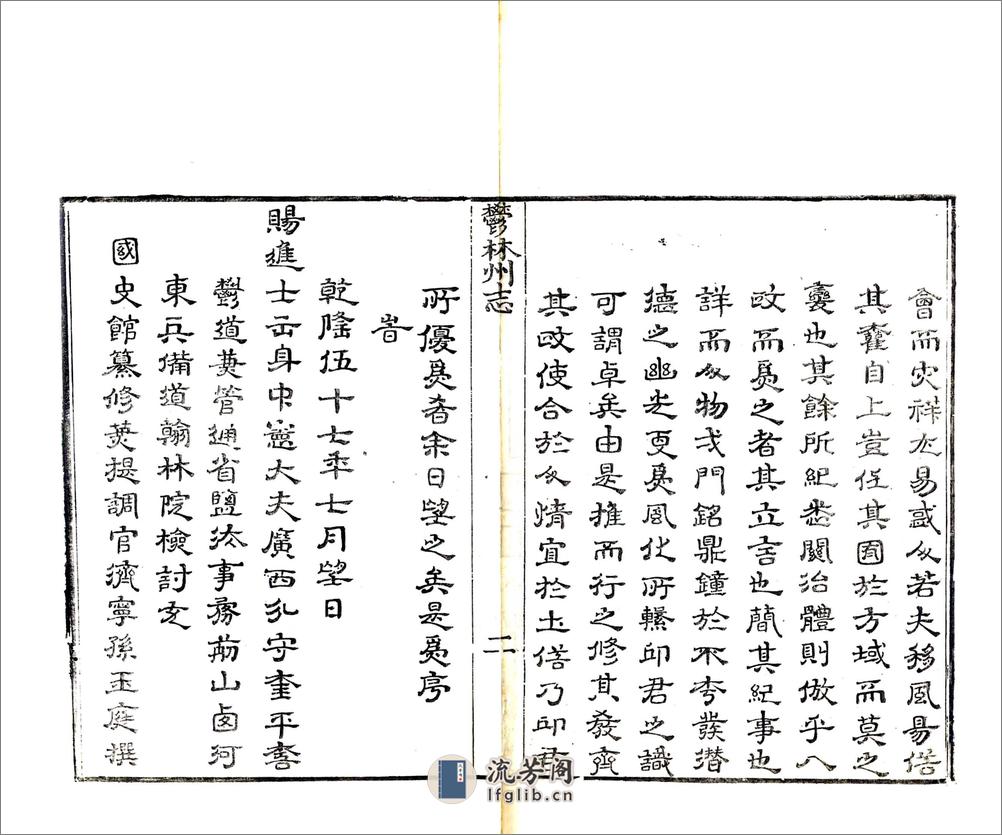 會而災祥尤易惑人若夫移風易俗
其權自上豈任其囿於方域而莫之
變也其餘所紀悉關治體則倣乎八
政而爲之者其立言也簡其紀事也
詳而人物戈門銘鼎鐘於不朽發潛
德之幽光更爲風化所繫邱君之識
可謂卓矣由是推而行之修其發齊
其政使合於人情宜於土俗乃邱君
鬱林州志
二
所優爲者余日望之矣是爲序
旹
乾隆伍十七年七月望日
賜進士出身中憲大夫廣西分守桂平
鬱道兼管通省鹽法事務前山西河
東兵備道翰林院檢討充
國史館纂修兼提調官濟寧孫玉庭撰
流芳阁
lfglib.cn